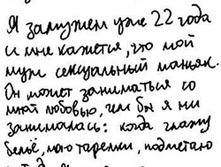 Я замужем уже 22 года
и мне кажется, что мой
муж сексуальный маньяк.
Он может заниматься со
мной любовью, чем бы я ни
занималась: когда глажу
бельё, мою тарелки, подметаю